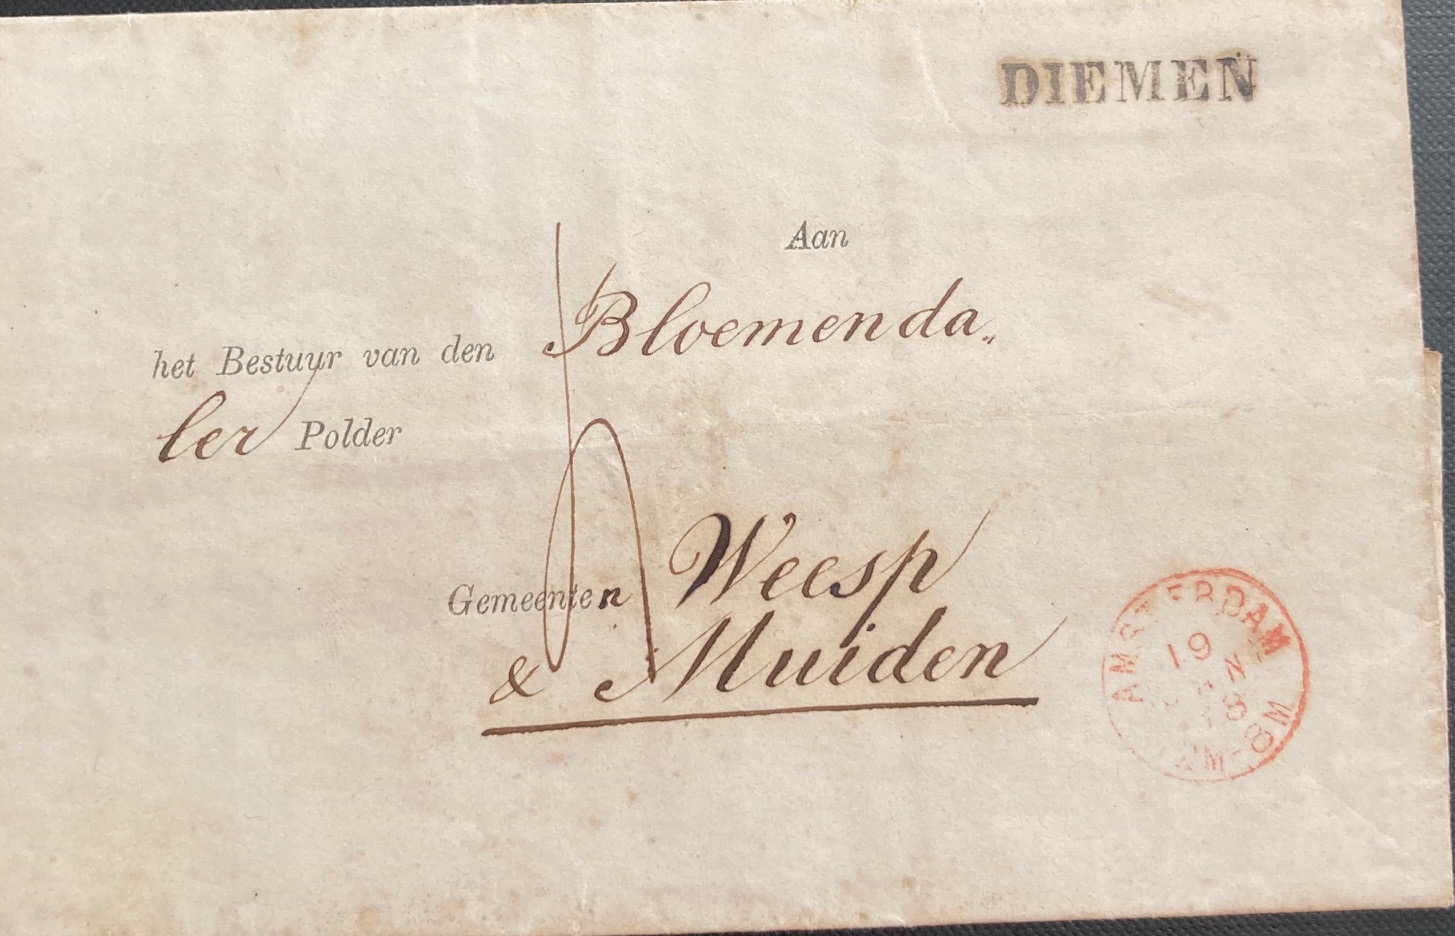 DIEMEN
Aan
het Bestuur van den Bloemenda„
ler Polder
Gemeenten Weesp
& Muiden
AMSTERDAM
19
8M-8M